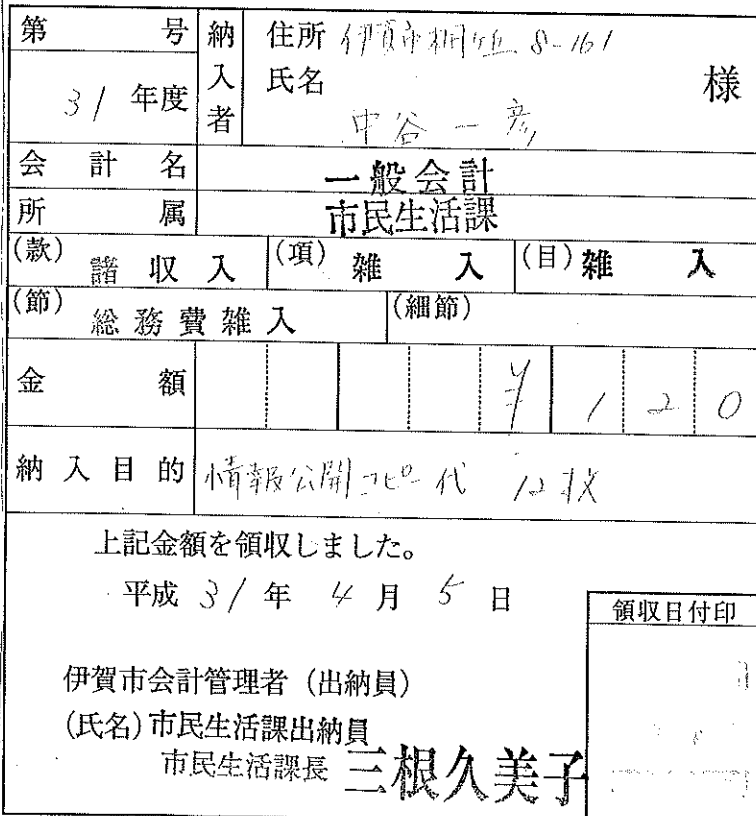 第 号
納入者
住所 伊賀市桐ヶ丘 8-161
氏名 中谷 一彦 様
31 年度
会計名 一般会計
所属 市民生活課
(款) 諸収入 (項) 雑入 (目) 雑入
(節) 総務費雑入 (細節)
金額 ¥120
納入目的 情報公開コピー代 12枚
上記金額を領収しました。
平成 31 年 4 月 5 日
領収日付印
伊賀市会計管理者 (出納員)
(氏名) 市民生活課出納員
市民生活課長 三根久美子